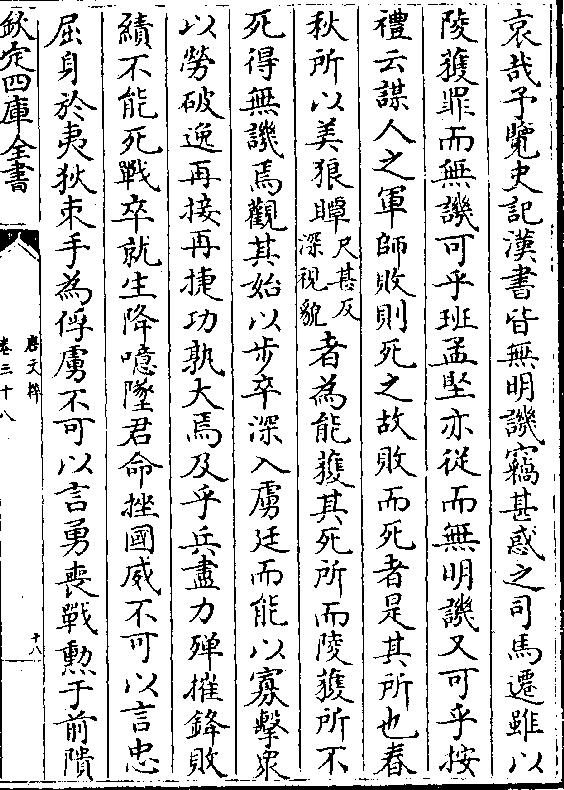 哀哉予覽史記漢書皆無明譏竊甚惑之司馬遷雖以
陵獲罪而無譏可乎班孟堅亦從而無明譏又可乎按
禮云謀人之軍師敗則死之故敗而死者是其所也春
秋所以美狼瞫尺甚反深視貌者為能獲其死所而陵獲所不
死得無譏焉觀其始以步卒深入虜廷而能以寡擊衆
以勞破逸再接再捷功孰大焉及乎兵盡力殫摧鋒敗
績不能死戰卒就生降噫墜君命挫國威不可以言忠
屈身於夷狄束手為俘虜不可以言勇喪戰勲于前隤
欽定四庫全書
唐文粹
卷三十八
十八